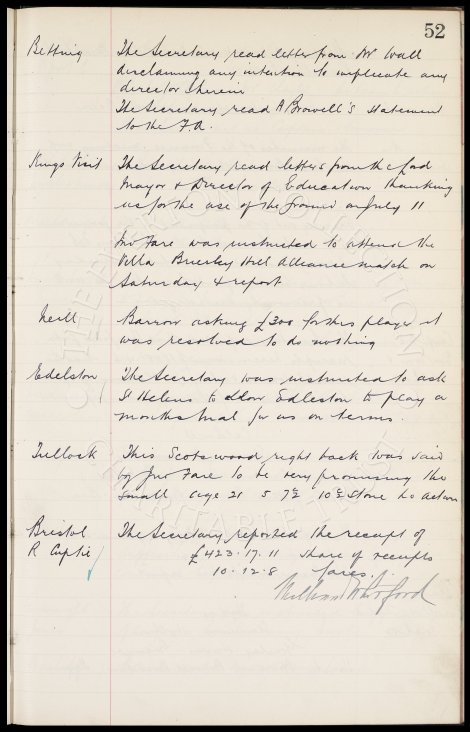 52
Betting The Secretary read letter from Mr Wall
disclaiming any intention to implicate any
director therein
The Secretary read A Browell's statement
to the F.A.
Kings Visit The Secretary read letters from the Lord
Mayor & Director of Education thanking
us for the use of the ground on July 11
Jno Fare was instructed to attend the
Villa Brierley Hill Alliance match on
Saturday & report
Neill Barrow asking £300 for this player it
was resolved to do nothing
Edelston The Secretary was instructed to ask
St Helens to allow Edleston to play a
months trial for us on terms.
Tullock This Scotswood right back was said
by Jno Fare to be very promising tho
small age 21 5 7½ 10½ stone no action
Bristol The Secretary reported the receipt of
R Cuptie £423.17.11 share of receipts
10.12.8 fares.
William Whitford
THE EVERTON COLLECTION
CHARITABLE TRUST